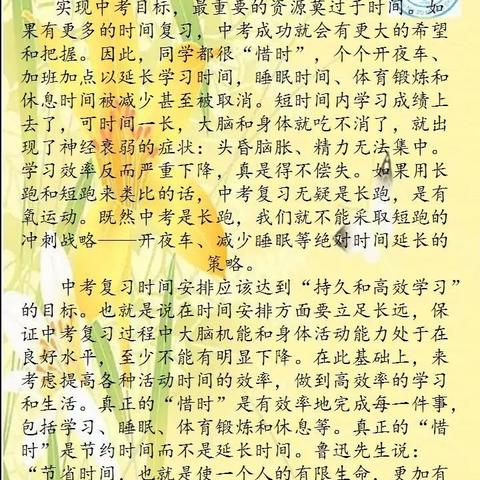 实现中考目标，最重要的资源莫过于时间。如
果有更多的时间复习，中考成功就会有更大的希望
和把握。因此，同学都很“惜时”，个个开夜车、
加班加点以延长学习时间，睡眠时间、体育锻炼和
休息时间被减少甚至被取消。短时间内学习成绩上
去了，可时间一长，大脑和身体就吃不消了，就出
现了神经衰弱的症状：头昏脑胀、精力无法集中。
学习效率反而严重下降，真是得不偿失。如果用长
跑和短跑来类比的话，中考复习无疑是长跑，是有
氧运动。既然中考是长跑，我们就不能采取短跑的
冲刺战略——开夜车、减少睡眠等绝对时间延长的
策略。
中考复习时间安排应该达到“持久和高效学习”
的目标。也就是说在时间安排方面要立足长远，保
证中考复习过程中大脑机能和身体活动能力处于在
良好水平，至少不能有明显下降。在此基础上，来
考虑提高各种活动时间的效率，做到高效率的学习
和生活。真正的“惜时”是有效率地完成每一件事，
包括学习、睡眠、体育锻炼和休息等。真正的“惜
时”是节约时间而不是延长时间。鲁迅先生说：
“节省时间，也就是使一个人的有限生命，更加有